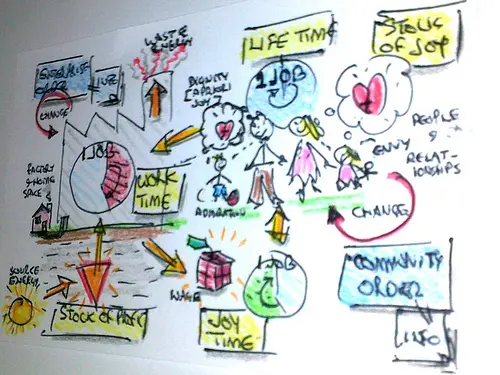 WASTE
ENERGY
LIFE TIME
STOCK
OF JOY
ORDER
INFO
DIGNITY
JOY
1 JOB
CHANGE
PEOPLE
&
ENVY
RELAT-
IONSHIPS
1 JOB
FACTORY
& HOME
SPACE
WORK
TIME
ADMIRATION
CHANGE
SOURCE
ENERGY
WAGE
1 JOB
COMMUNITY
ORDER
STOCK OF PROFIT
JOY
TIME
INFO